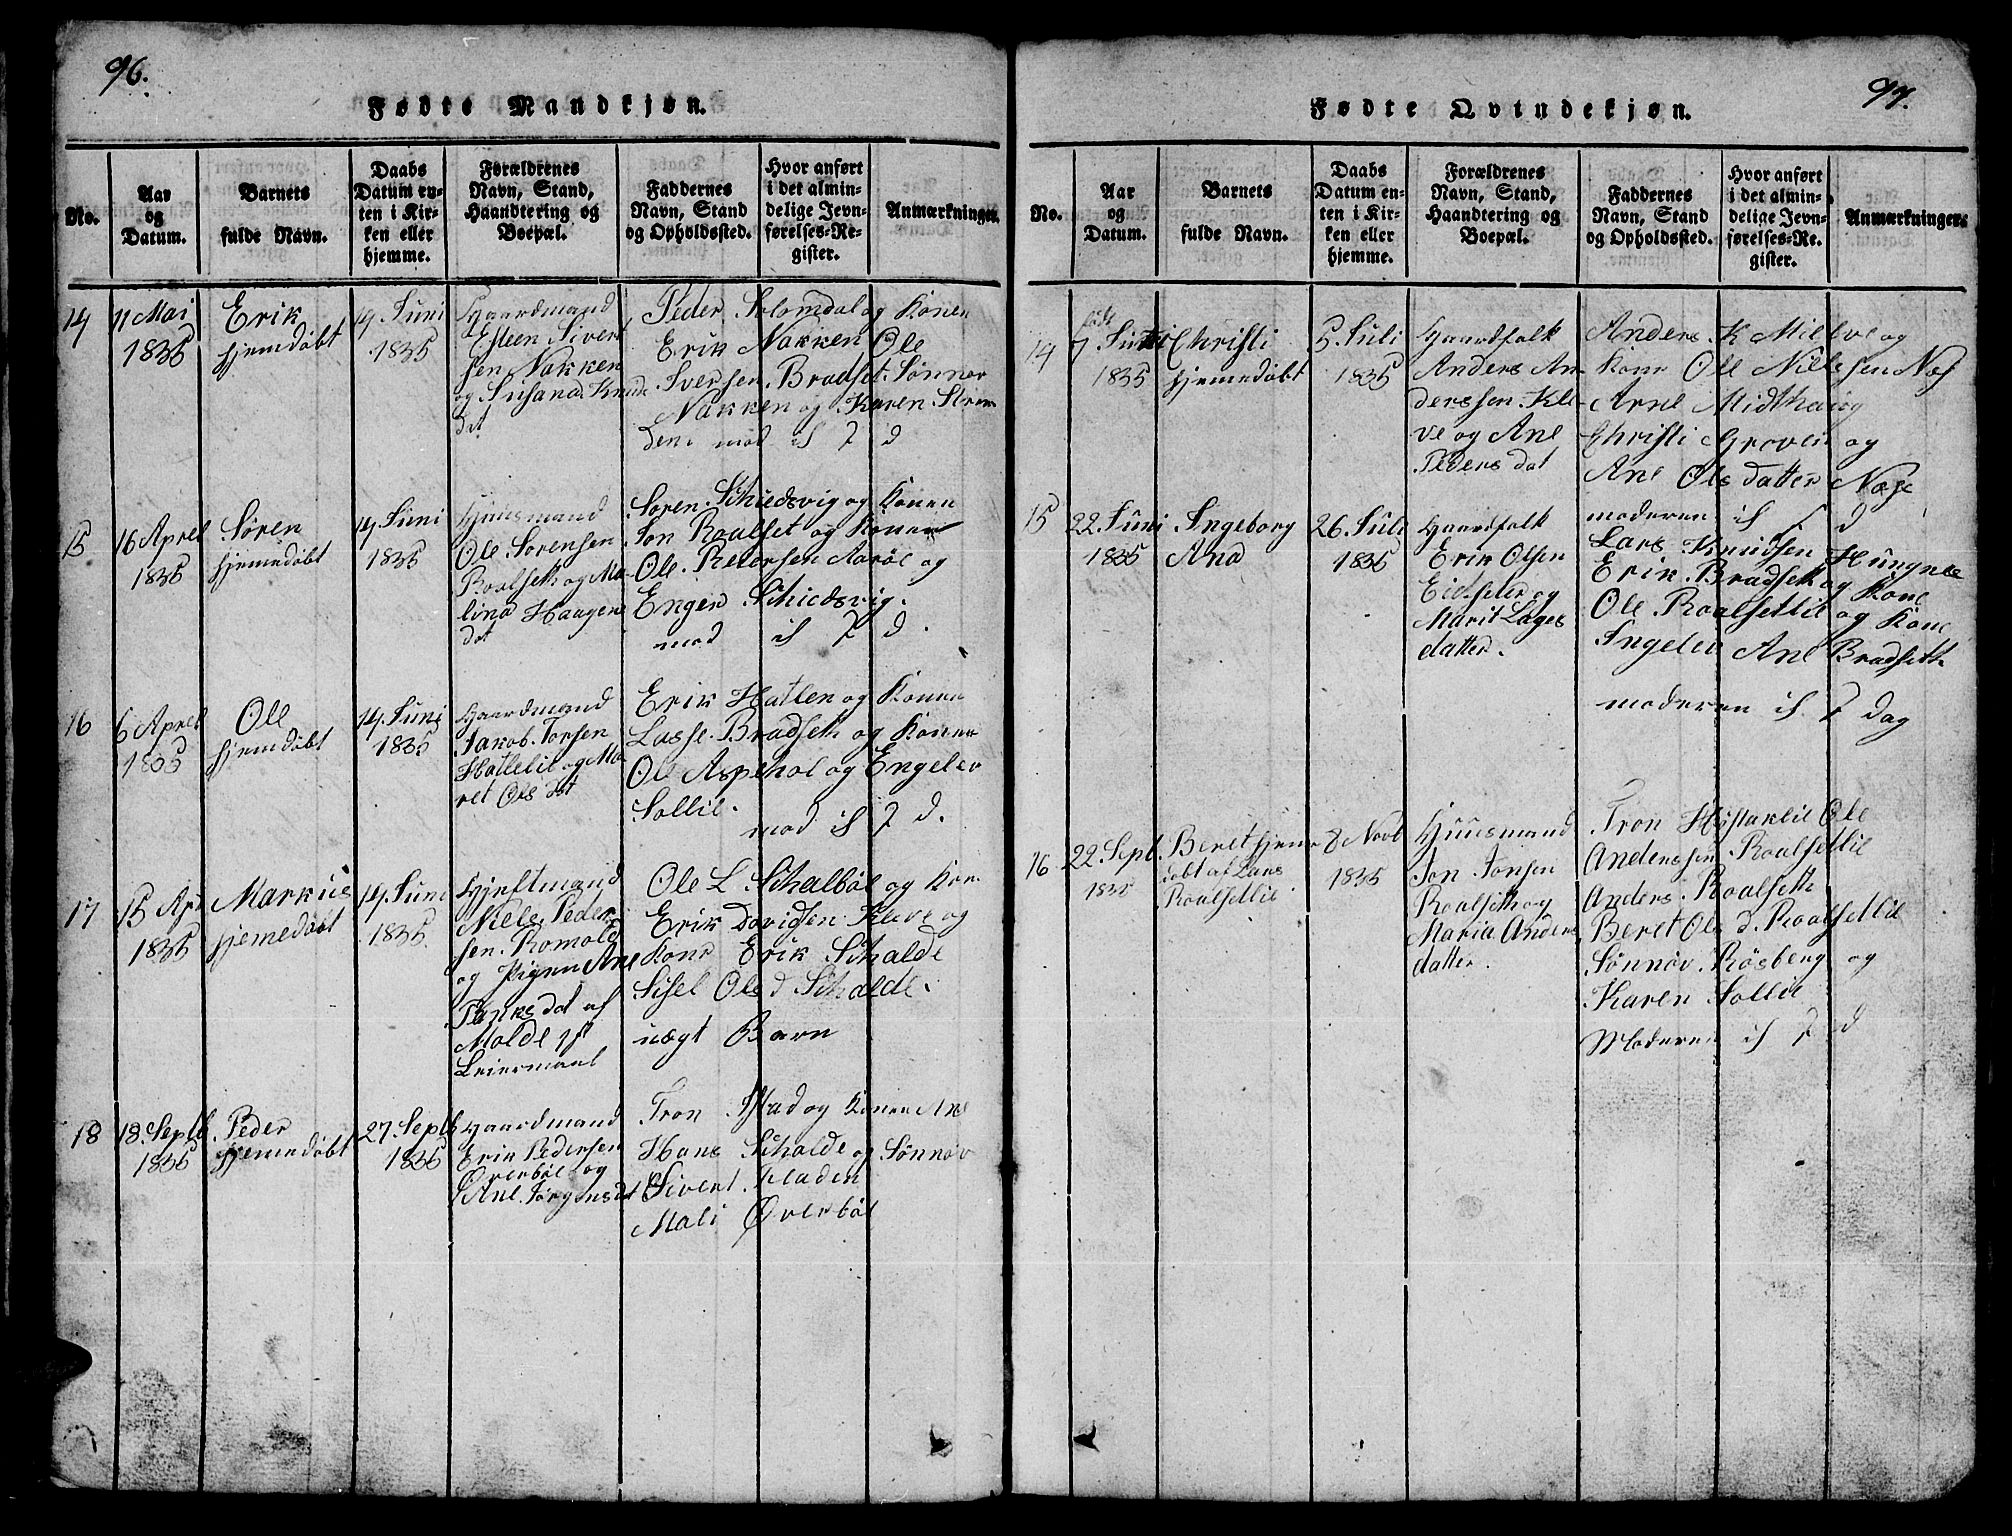 96.
Fødte Mandkjøn.
No.
Aar
og
Datum.
Barnets
fulde Navn.
Daabs
Datum en-
ten i Kir-
ken eller
hjemme.
Forældrenes
Navn, Stand,
Haandtering og
Boepæl.
Faddernes
Navn, Stand
og Opholdssted.
Hvor anført
i det almin-
delige Jevn-
førelses-Re-
gister.
Anmærkninger.
14
11 Mai
1835
Erik
hjemdøbt
14 Juni
1835
Gaardmand
Esteen Sivert
sen Nakken
og Susana Knuds
dat
Peder Solemdal og Konen
Erik Nakken Ole
Iversen Bradset Sønnøv
Nakken og Karen Stran
den mod if 7 d
15
16 Aprel
1835
Søren
hjemedøbt
14 Juni
1835
Huusmand
Ole Sørensen
Roalseth og Ma-
lina Haagens
dat
Søren Schiedsvig og Konen
Jon Roalset og Konen
Ole Petersen Aarøe og
Enger Schiedsvig.
mod if 7 d.
16
6 Aprel
1835
Ole
hjemdøbt
14 Juni
1835
Gaardmand
Jakob Torsen
Hatlelie og Ma
ret Ols dat
Erik Hatlen og Konen
Lasse Bradseth og Konen
Ole Aspehol og Engelev
Sollie.
mod if 7 d.
17
15 Apr
1835
Markus
hjemedøbt
14 Juni
1835
Niels Peder
sen Romold
og Pigen Ane
dat af
Molde 1st
Leiermaal
Ole L Schalbøe og Kon
Erik Davidsen Kleve og
Kone Erik Schalde
Sisel Ole d Schalde.
uægt Barn
18
18 Septb
1835
Peder
hjemedøbt
27 Septb
1835
Gaardmand
Erik Pedersen
Øverbøe og
Ane Jørgensdat
Tron Istad og Konen Ane
Hans Schalde og Sønnøv
Sivert Fladen
Mali Øverbøe
97.
Fødte Qvindekjøn.
No.
Aar
og
Datum.
Barnets
fulde Navn.
Daabs
Datum en-
ten i Kir-
ken eller
hjemme.
Forældrenes
Navn, Stand,
Haandtering og
Boepæl.
Faddernes
Navn, Stand
og Opholdssted.
Hvor anført
i det almin-
delige Jevn-
førelses-Re.
gister.
Anmærkninger.
14
født
7 Juni
1835
Christi
hjemedøbt
5 Juli
1835
Gaardfolk
Anders An
derssen Kle
ve og Ane
Peders dat
Anders K Milve og
Kone Ole Nielsen Næs
Arne Midthaug
Christi Groven og
Ane Ols datter Næsse
moderen if 7 d
15
22 Juni
1835
Ingeborg
Ana
26 Juli
1835
Gaardfolk
Erik Olsen
Eidseter og
Marit Lages
datter.
Lars Knudsen Hungnes
Erik Bradseth og Kone
Ole Roalsetlie og Kone
Ingelev Ane Bradseth
moderen if 7 dag
16
22 Sept.
1835
Beret hjem
døbt af Lars
Roalsetlie
8 Novb
1835
Huusmand
Jon Jonsen
Roalseth og
Maria Anders
datter.
Tron Hostaklie Ole
Anderssen Roalsetlie
Anders Roalseth
Beret Ols d. Roalsetlie
Sønnøv Røsberg og
Karen Sollie
Moderen if 7 d